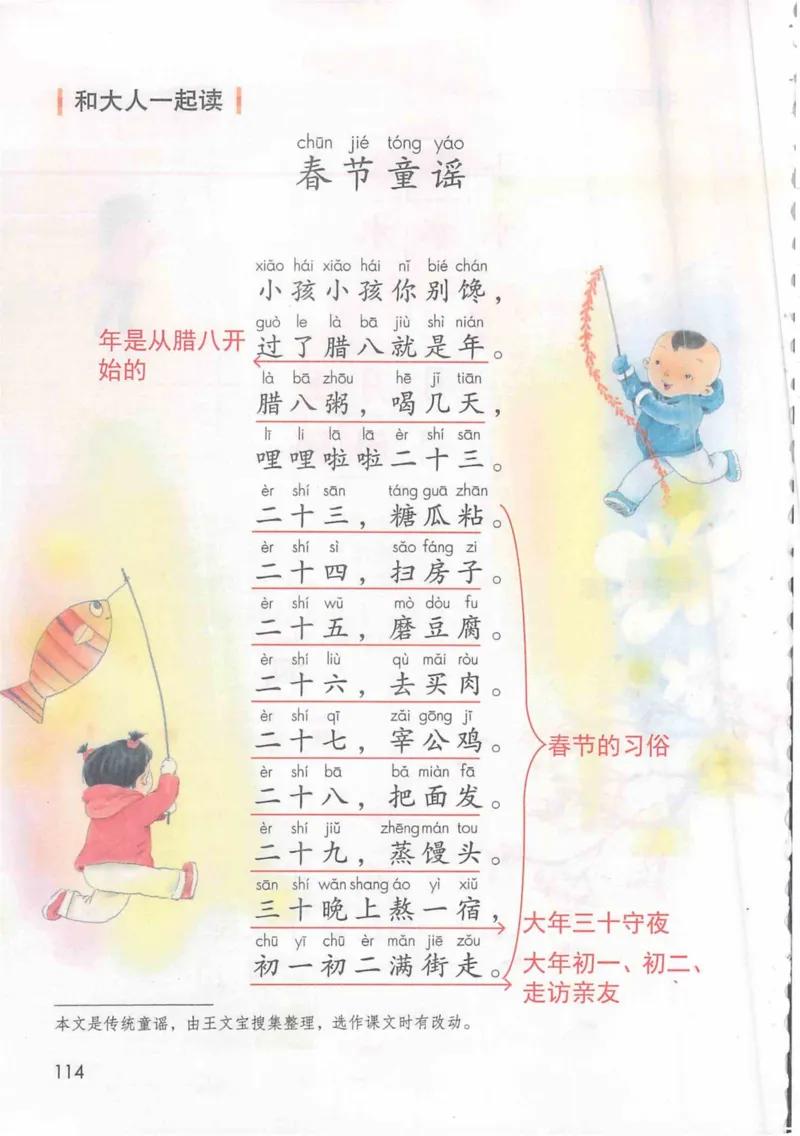 和大人一起读
chūn jié tóng yáo
春节童谣
xiǎo hái xiǎo hái nǐ bié chán
小孩小孩你别馋，
guò le là bā jiù shì nián
过了腊八就是年。
年是从腊八开
始的
là bā zhōu hē jǐ tiān
腊八粥，喝几天，
lī li lā lā èr shí sān
哩哩啦啦二十三。
èr shí sān táng guā zhān
二十三，糖瓜粘。
èr shí sì sǎo fáng zi
二十四，扫房子。
èr shí wǔ mò dòu fu
二十五，磨豆腐。
èr shí liù qù mǎi ròu
二十六，去买肉。
èr shí qī zǎi gōng jī
二十七，宰公鸡。
春节的习俗
èr shí bā bǎ miàn fā
二十八，把面发。
èr shí jiǔ zhēng mán tou
二十九，蒸馒头。
sān shí wǎn shang áo yì xiǔ
三十晚上熬一宿，
大年三十守夜
chū yī chū èr mǎn jiē zǒu
初一初二满街走。
大年初一、初二、
走访亲友
本文是传统童谣，由王文宝搜集整理，选作课文时有改动。
114